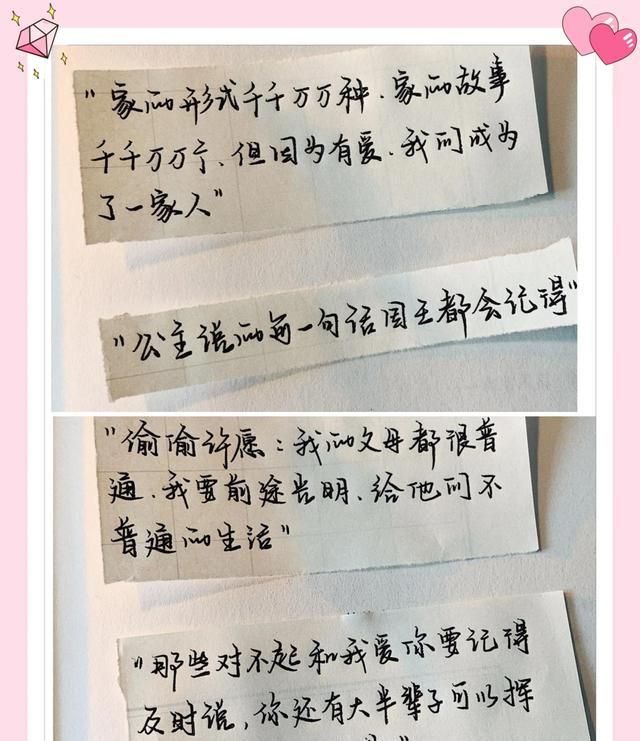 "家的形式千千万万种、家的故事
千千万万个、但因为有爱、我们成为
了一家人"
"公主说的每一句话国王都会记得"
"偷偷许愿：我的父母都很普
通、我要前途光明、给他们不
普通的生活"
"那些对不起和我爱你要记得
及时说，你还有大半辈子可以挥